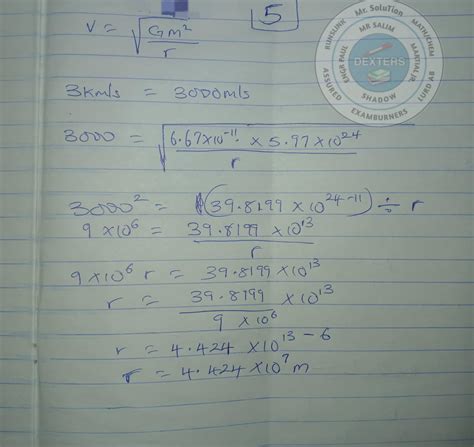 5
V = √(Gm²/r)
3km/s = 3000m/s
3000 = √(6.67×10⁻¹¹ × 5.97×10²⁴/r)
3000² = (39.8199 × 10²⁴⁻¹¹) ÷ r
9 × 10⁶ = 39.8199 × 10¹³/r
9 × 10⁶ r = 39.8199 × 10¹³
r = 39.8199 × 10¹³/9 × 10⁶
r = 4.424 × 10¹³⁻⁶
r = 4.424 × 10⁷m
Mr. SoluTion
MR SALIM
MATH/CHEM
RUNSLINK
ENGR PAUL
DEXTERS
SHADOW
ASSURED
EXAMBURNERS